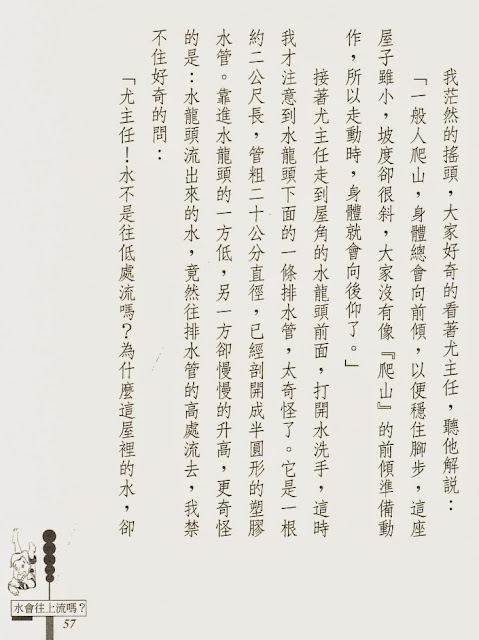 我茫然的搖頭，大家好奇的看著尤主任，聽他解說：
「一般人爬山，身體總會向前傾，以便穩住腳步，這座
屋子雖小，坡度卻很斜，大家沒有像『爬山』的前傾準備動
作，所以走動時，身體就會向後仰了。」
接著尤主任走到屋角的水龍頭前面，打開水洗手，這時
我才注意到水龍頭下面的一條排水管，太奇怪了。它是一根
約二公尺長，管粗二十公分直徑，已經剖開成半圓形的塑膠
水管。靠進水龍頭的一方低，另一方卻慢慢的升高，更奇怪
的是：水龍頭流出來的水，竟然往排水管的高處流去，我禁
不住好奇的問：
「尤主任！水不是往低處流嗎？為什麼這屋裡的水，卻
水會往上流嗎？
57